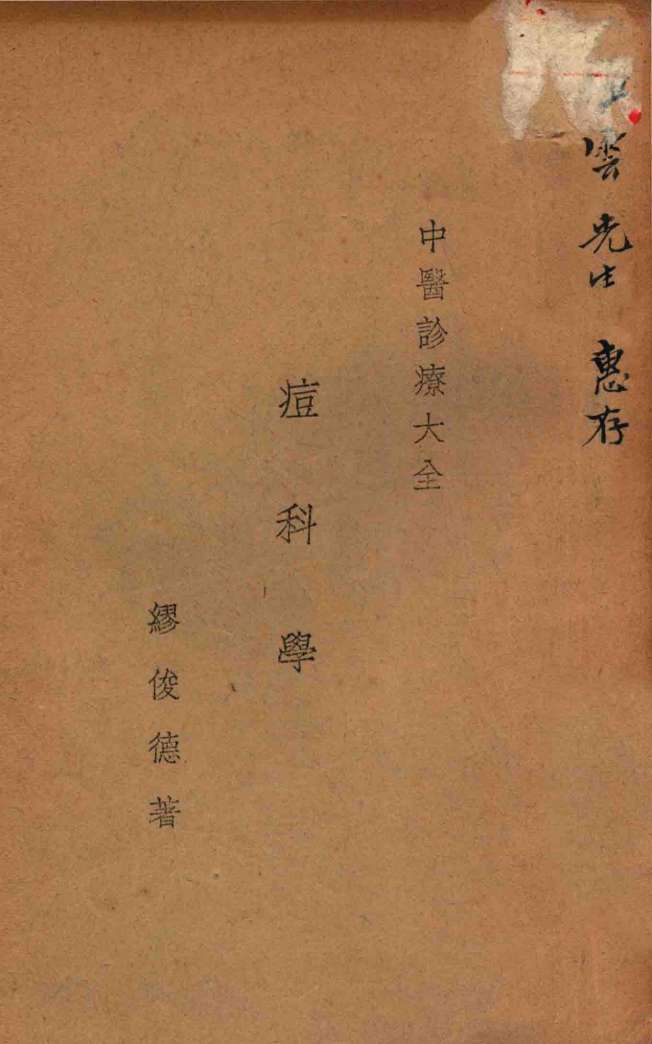 雲先生 惠存
中醫診療大全
痘科學
繆俊德著